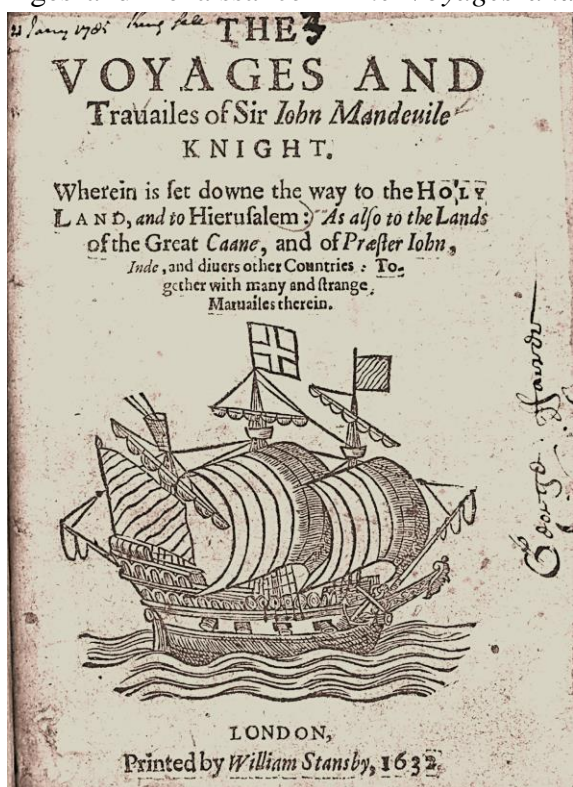 THE 3
VOYAGES AND
Trauailes of Sir Iohn Mandeuile
KNIGHT.
Wherein is ſet downe the way to the HOLY
LAND, and to Hieruſalem: As alſo to the Lands
of the Great Caane, and of Præſter Iohn,
Inde, and diuers other Countries: To-
gether with many and ſtrange
Maruailes therein.
LONDON,
Printed by William Stansby, 1632
George